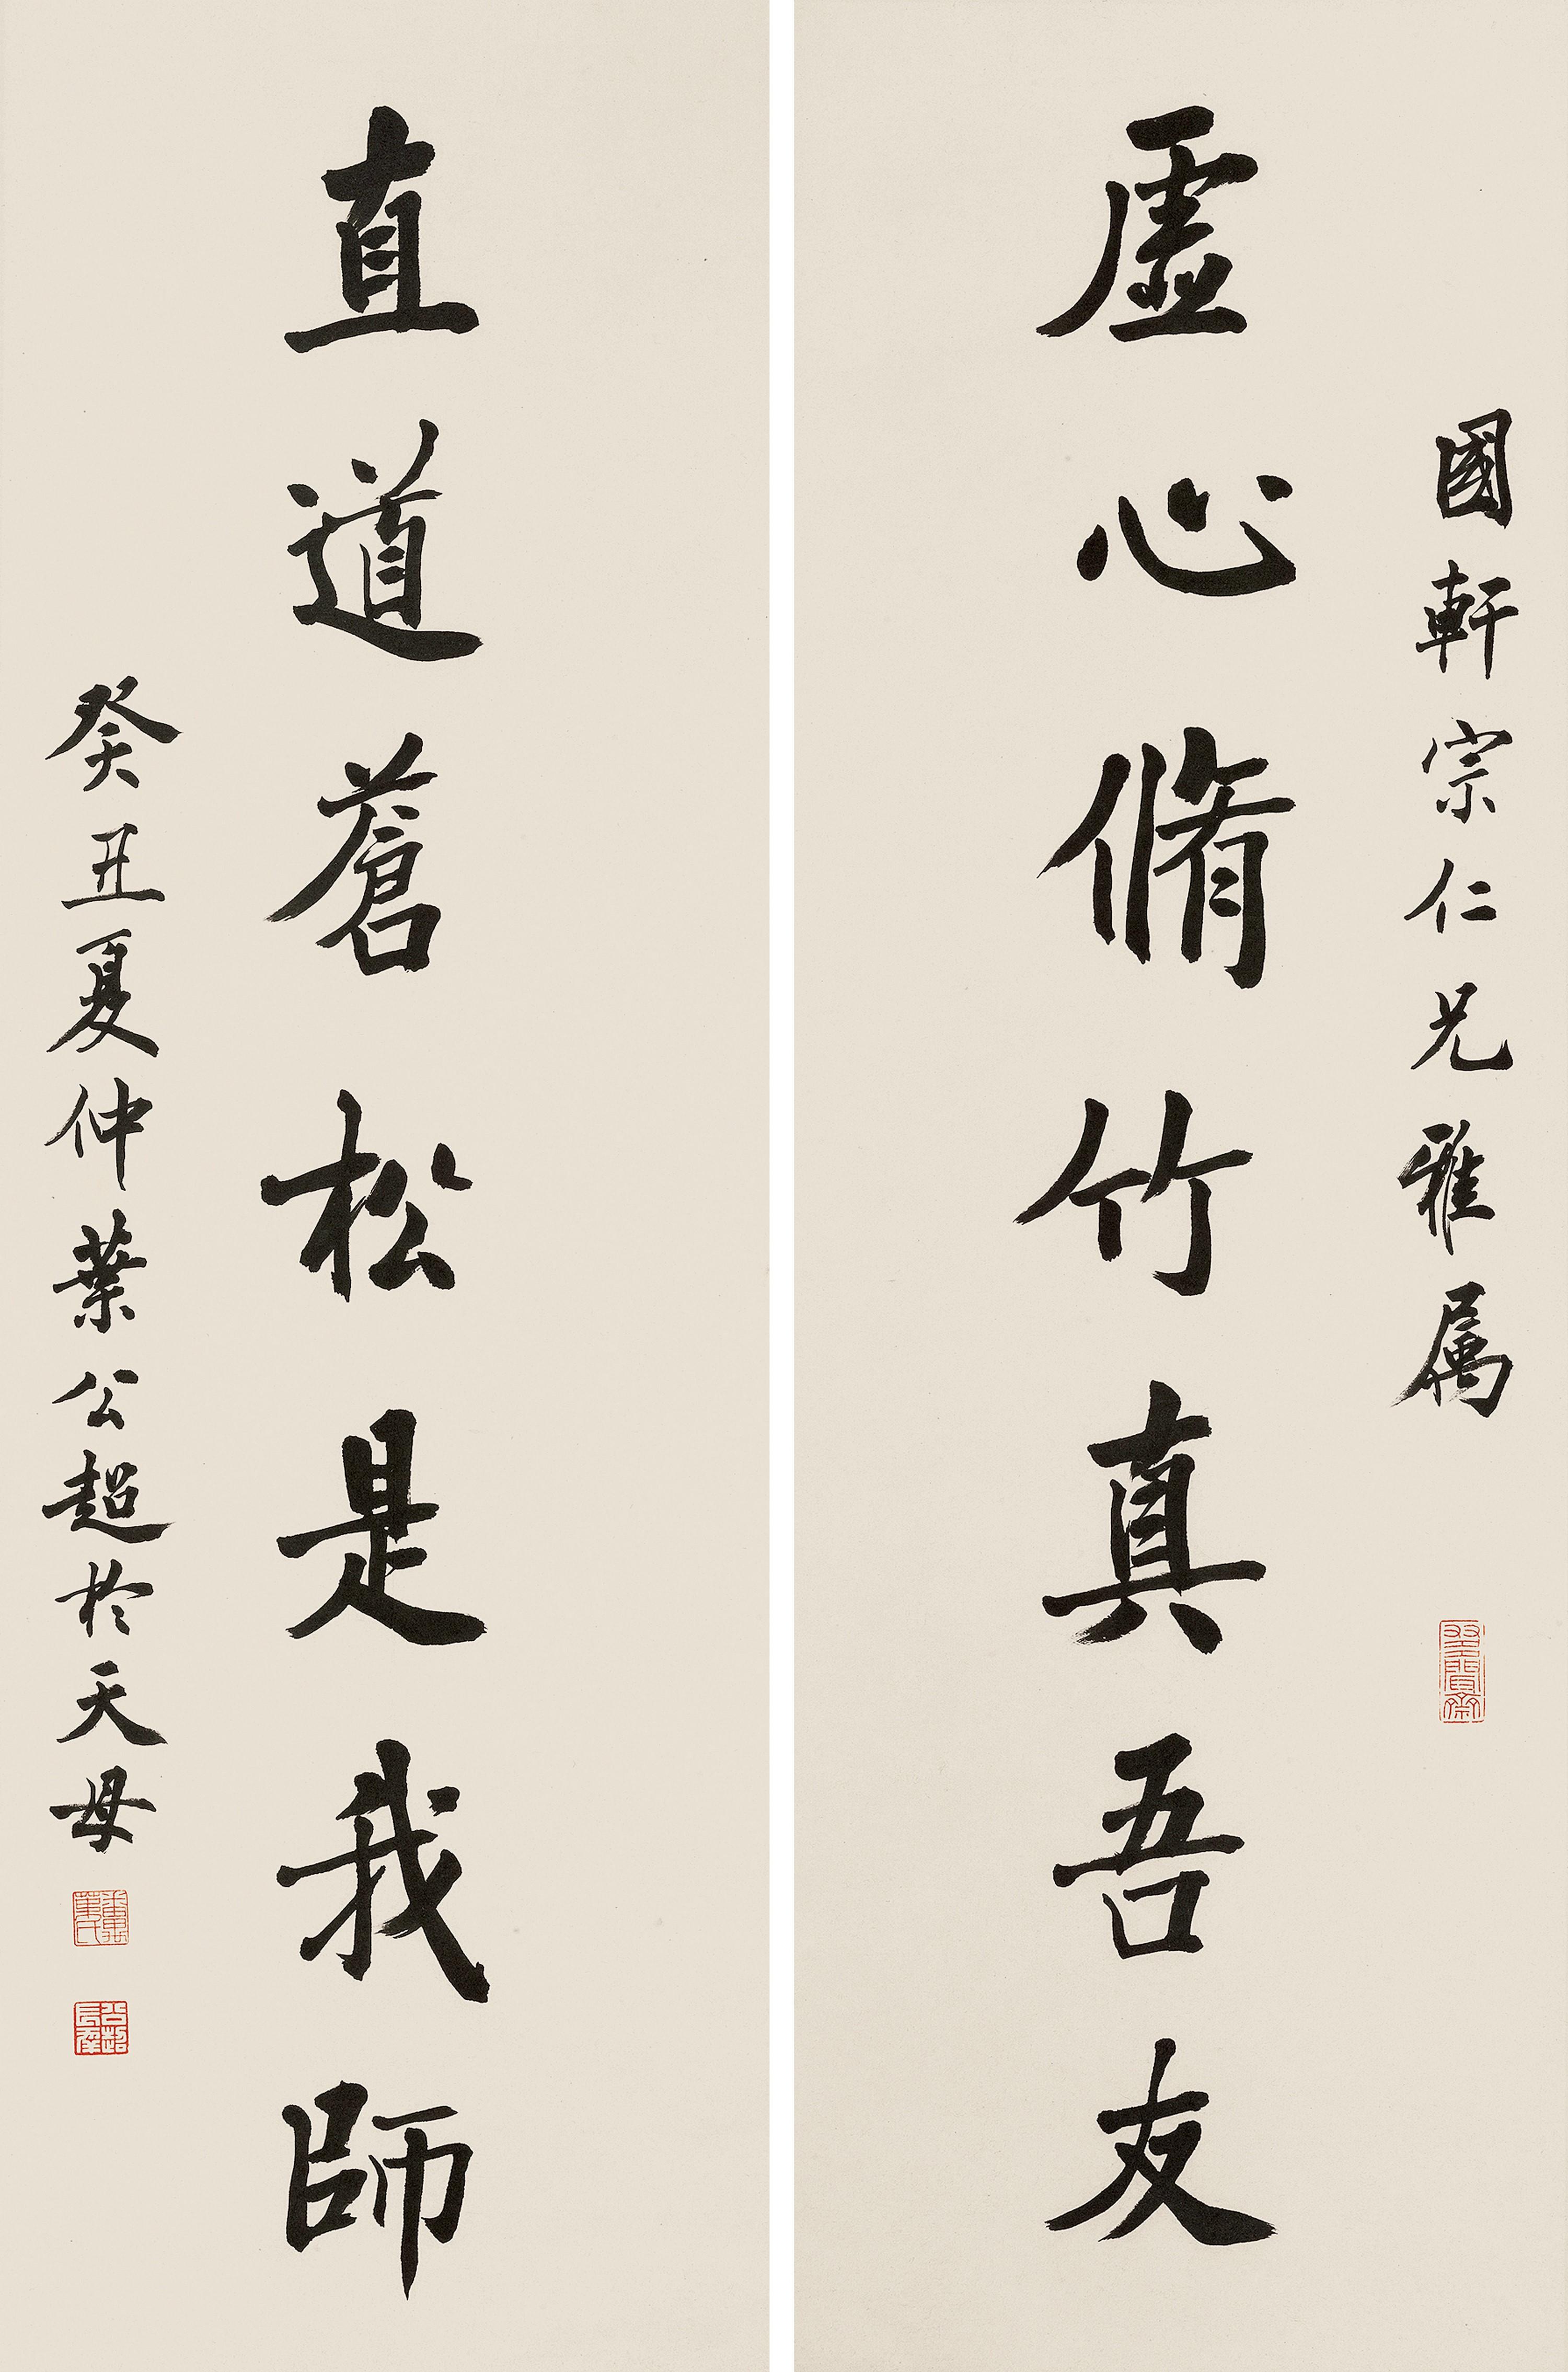 國軒宗仁兄雅属
虛心脩竹真吾友
直道蒼松是我師
癸丑夏仲葉公超於天母